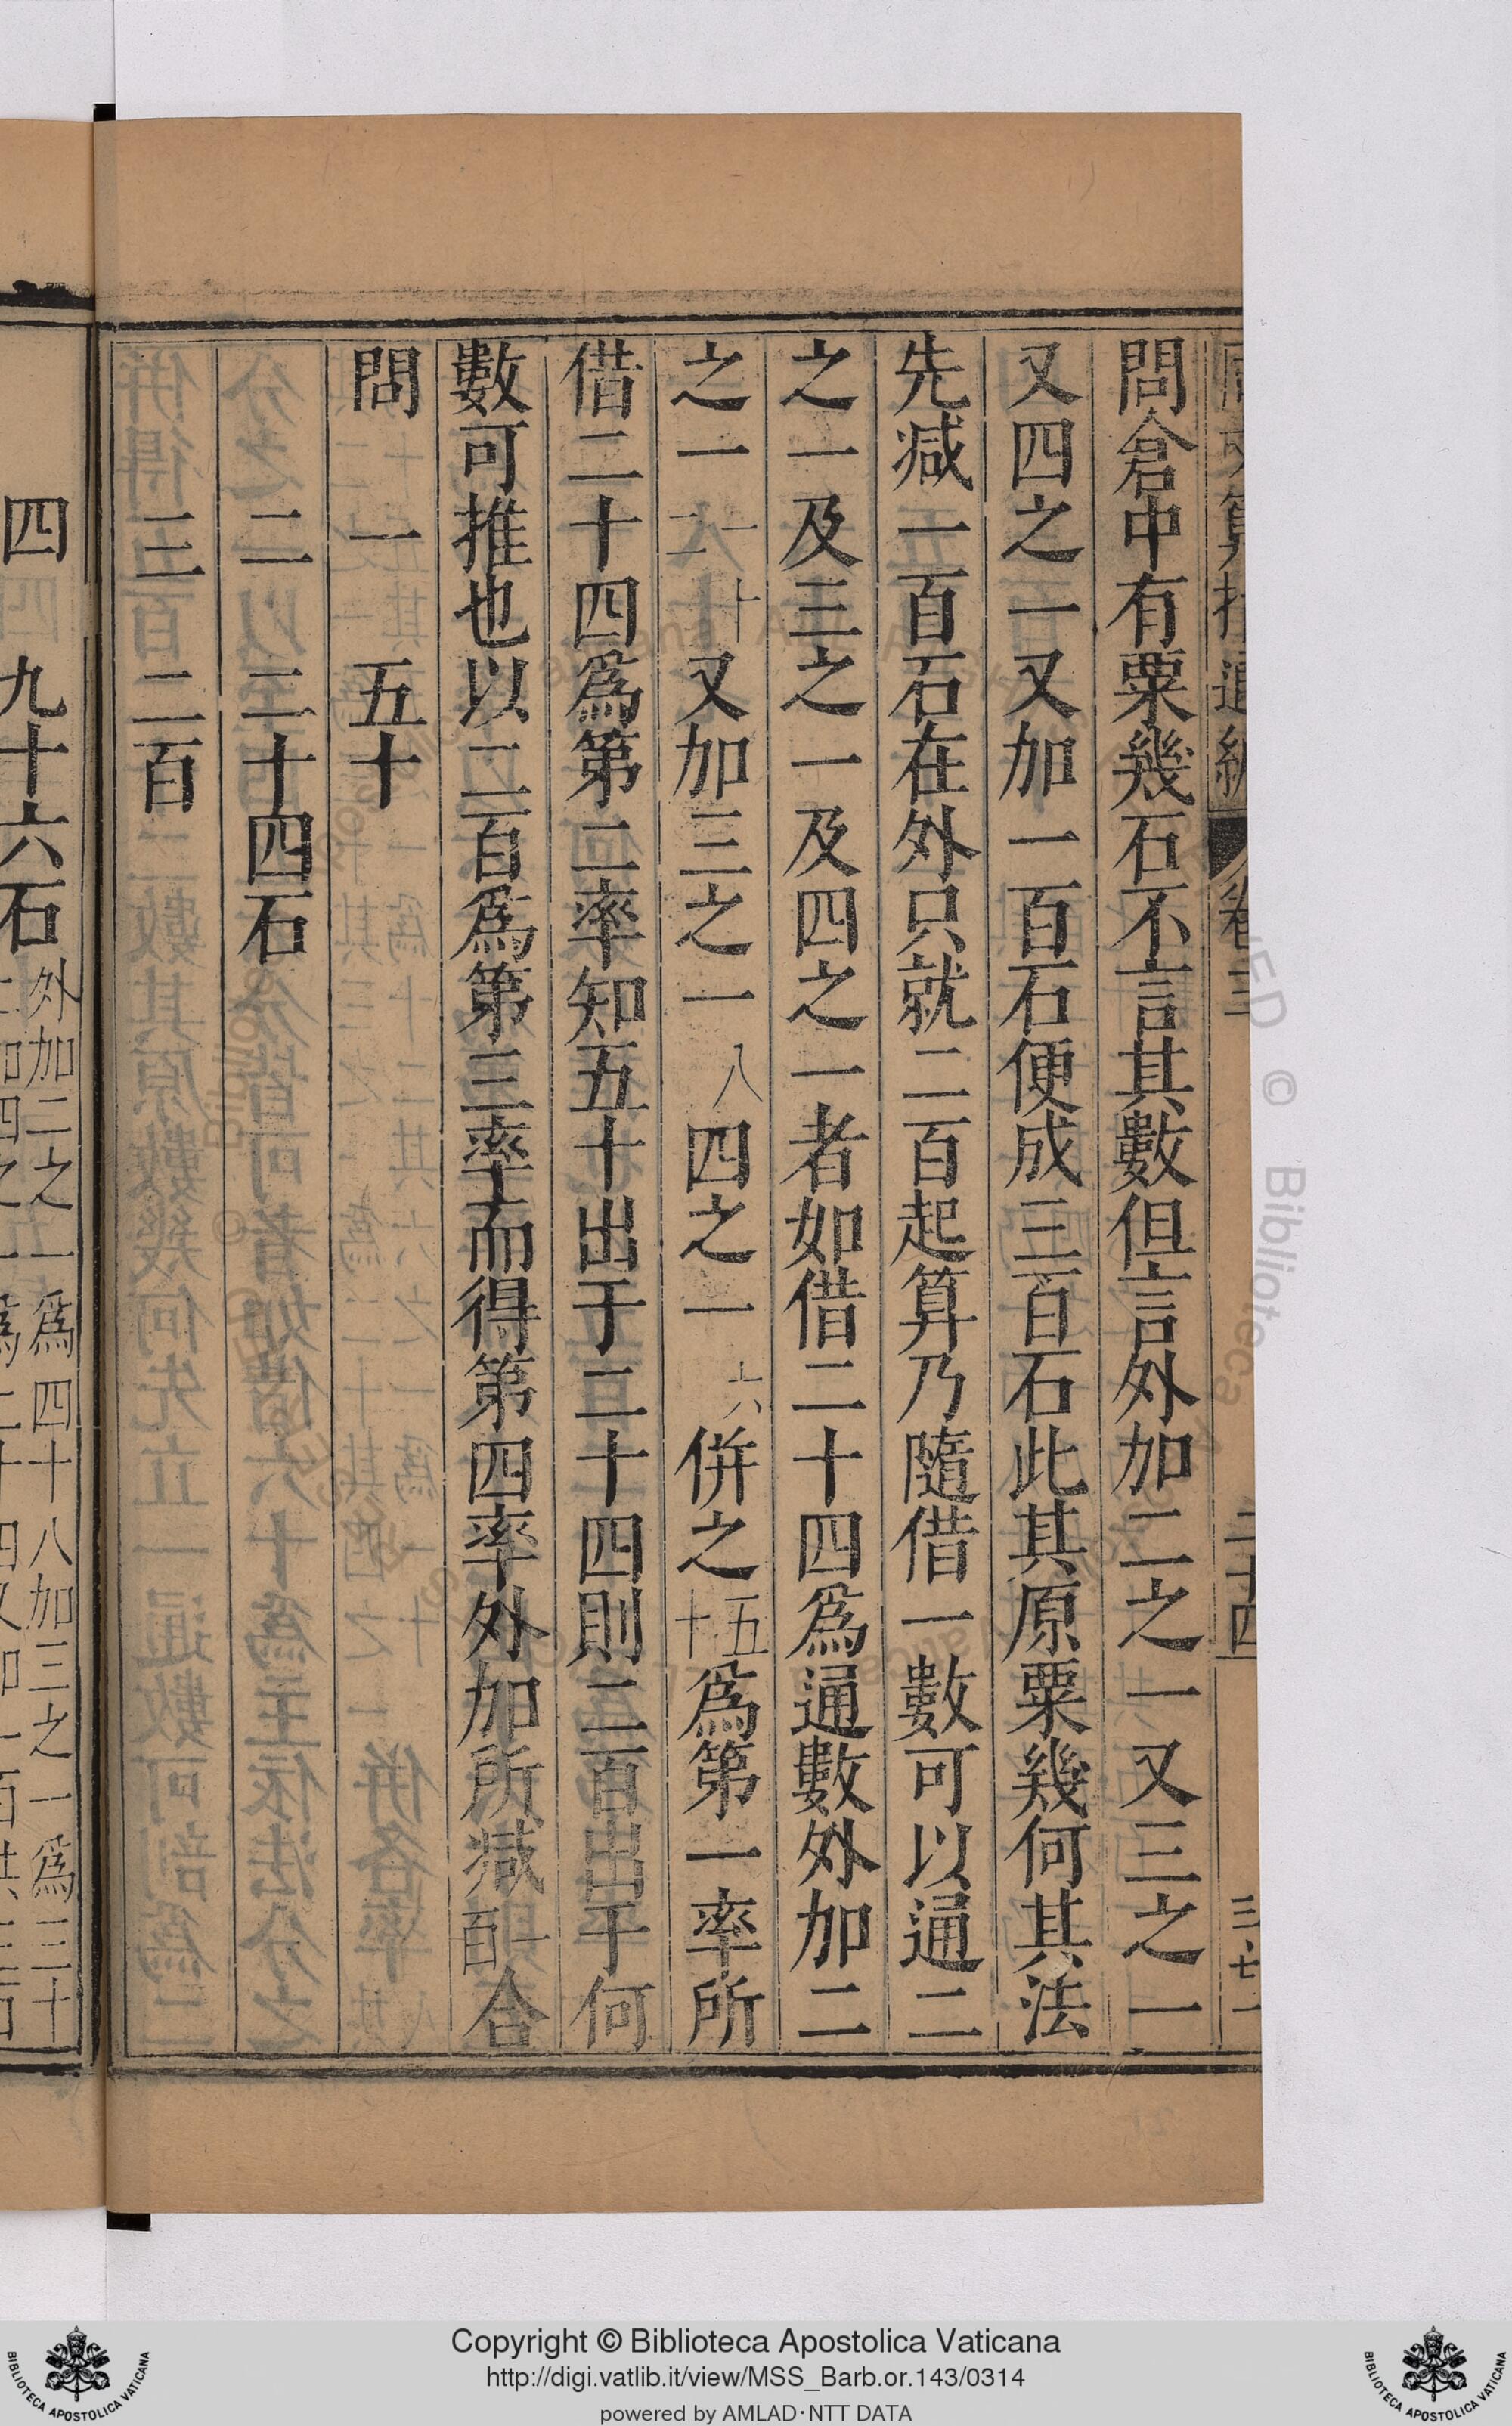 問倉中有粟幾石不言其數但言外加二之一又三之一
又四之一又加一百石便成三百石此其原粟幾何其法
先减一百石在外只就二百起算乃隨借一數可以通二
之一及三之一及四之一者如借二十四爲通數外加二
之一一十二又加三之一八四之一六併之五十爲第一率所
借二十四爲第二率知五十出于二十四則二百出于何
數可推也以二百爲第三率而得第四率外加所减一百合
問
一 五十
二 二十四石
三 二百
四 九十六石
外加二之一爲四十八加三之一爲三十
卷三
二十四
三七一
Copyright © Biblioteca Apostolica Vaticana
http://digi.vatlib.it/view/MSS_Barb.or.143/0314
powered by AMLAD·NTT DATA
BIBLIOTECA APOSTOLICA VATICANA
BIBLIOTECA APOSTOLICA VATICANA